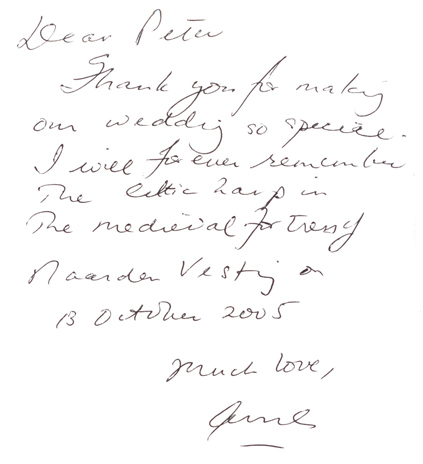 Dear Peter
Thank you for making
our wedding so special.
I will forever remember
The Celtic harp in
The medieval fortress of
Naarden Vesting on
13 October 2005
Much love,